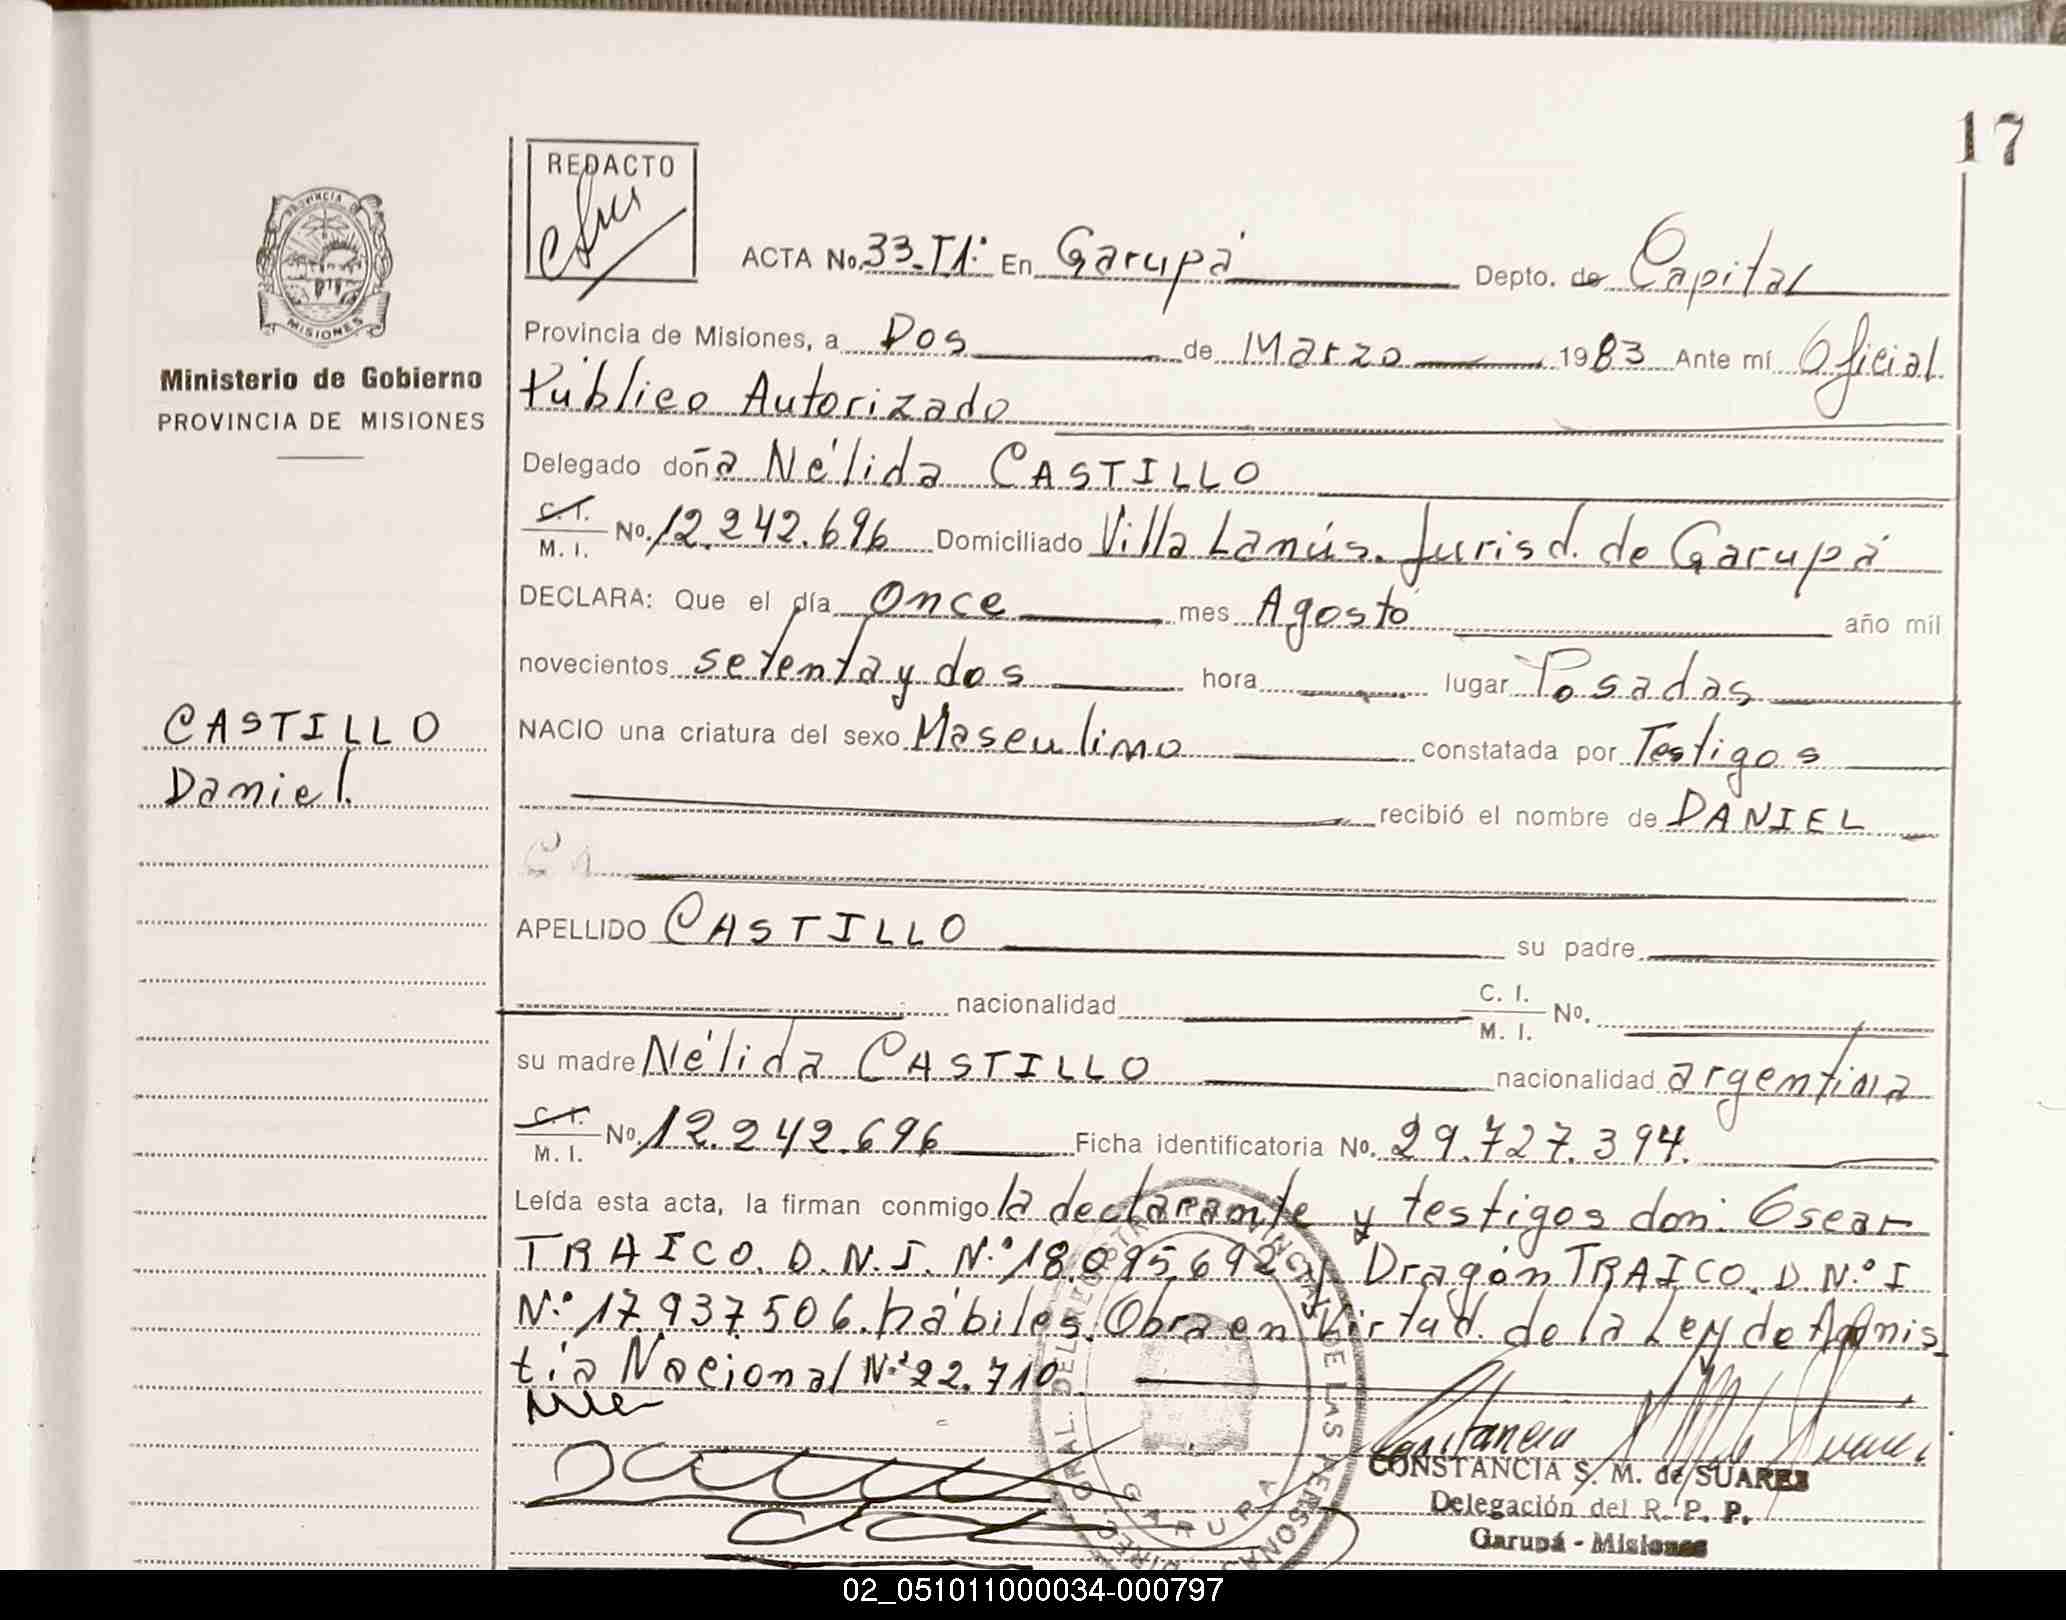 17
REDACTO
PROVINCIA DE
MISIONES
Ministerio de Gobierno
PROVINCIA DE MISIONES
ACTA No. 33-T1: En Garupá Depto. de Capital
Provincia de Misiones, a Dos de Marzo 1983 Ante mí Oficial
Público Autorizado
Delegado doña Nélida CASTILLO
C. I.
M. I. No. 12.242.696 Domiciliado Villa Lanús. Jurisd. de Garupá
DECLARA: Que el día Once mes Agosto año mil
novecientos setenta y dos hora lugar Posadas
NACIO una criatura del sexo Masculino constatada por Testigos
CASTILLO
Daniel.
recibió el nombre de DANIEL
Ca
APELLIDO CASTILLO su padre
nacionalidad C. I.
M. I. No.
su madre Nélida CASTILLO nacionalidad argentina
C. I.
M. I. No. 12.242.696 Ficha identificatoria No. 29.727.394.
Leída esta acta, la firman conmigo la declarante y testigos don: Oscar
TRAICO. D.N.I. N.º 18.095.692 y Dragón TRAICO. D N.º I
N.º 17.937506. hábiles. Obra en Virtud. de la Ley de Amnis_
tía Nacional N.º 22.710
CONSTANCIA S. M. de SUAREZ
Delegación del R. P. P.
Garupá - Misiones
DEL REGISTRO PROVINCIAL DE LAS PERSONAS
GARUPA
02_051011000034-000797